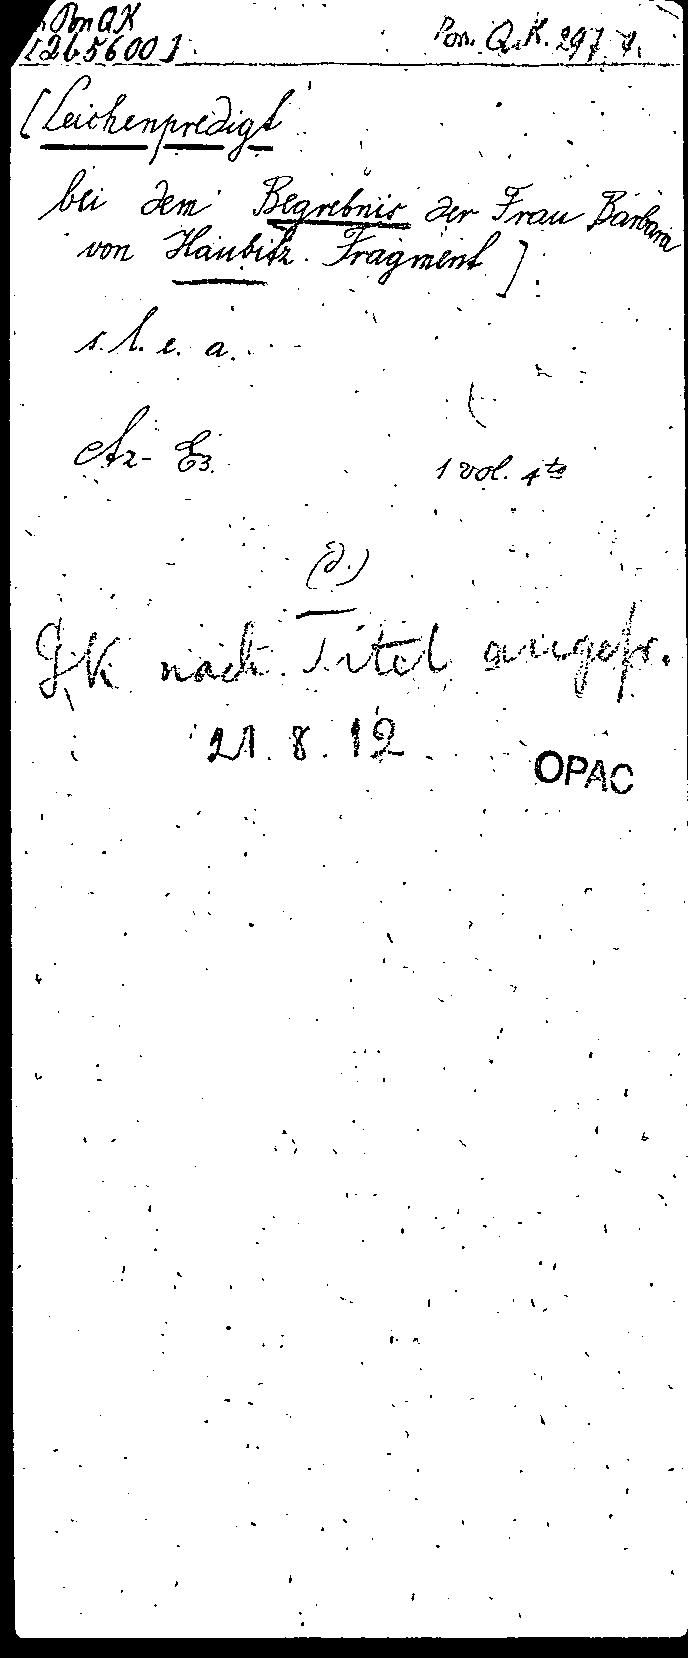 Pon QK
[265600]
Pon. Q.K. 297, 7.
[Leichenpredigt
bei dem Begrebnis der Frau Barbara
von Haubitz. Fragment]
s. l. e. a.
A2- E3.
1 vol. 4to
(d.)
GK nach Titel angefr.
21.8.12
OPAC